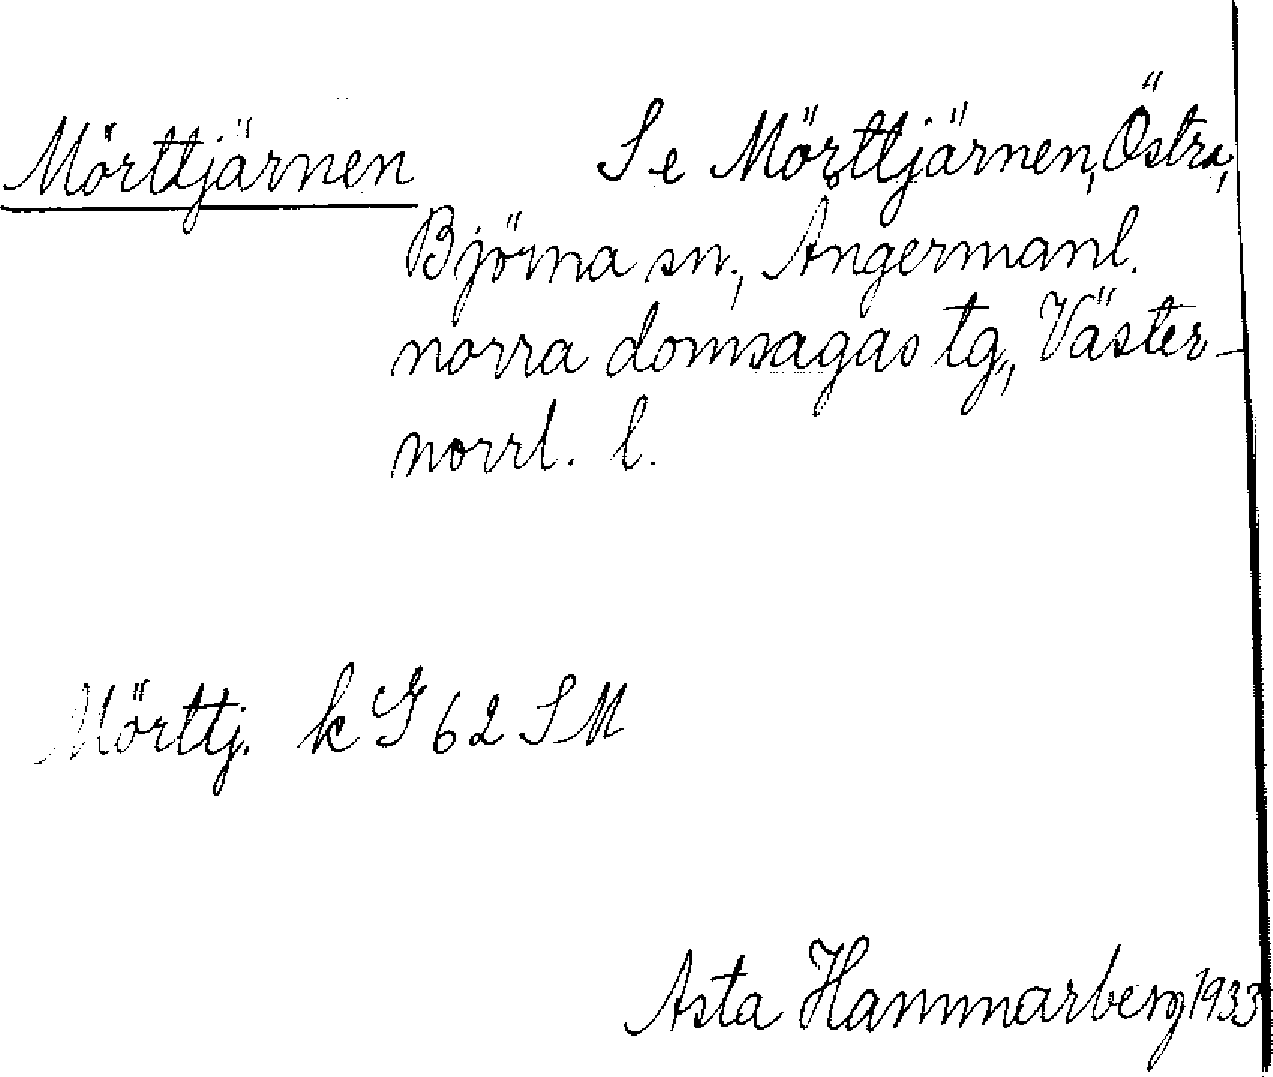 Mörttjärnen Se Mörttjärnen, Östra,
Björna sn, Ångermanl.
norra domsagas tg, Väster-
norrl. l.
Mörttj. k G 62 SM
Asta Hammarberg 1933